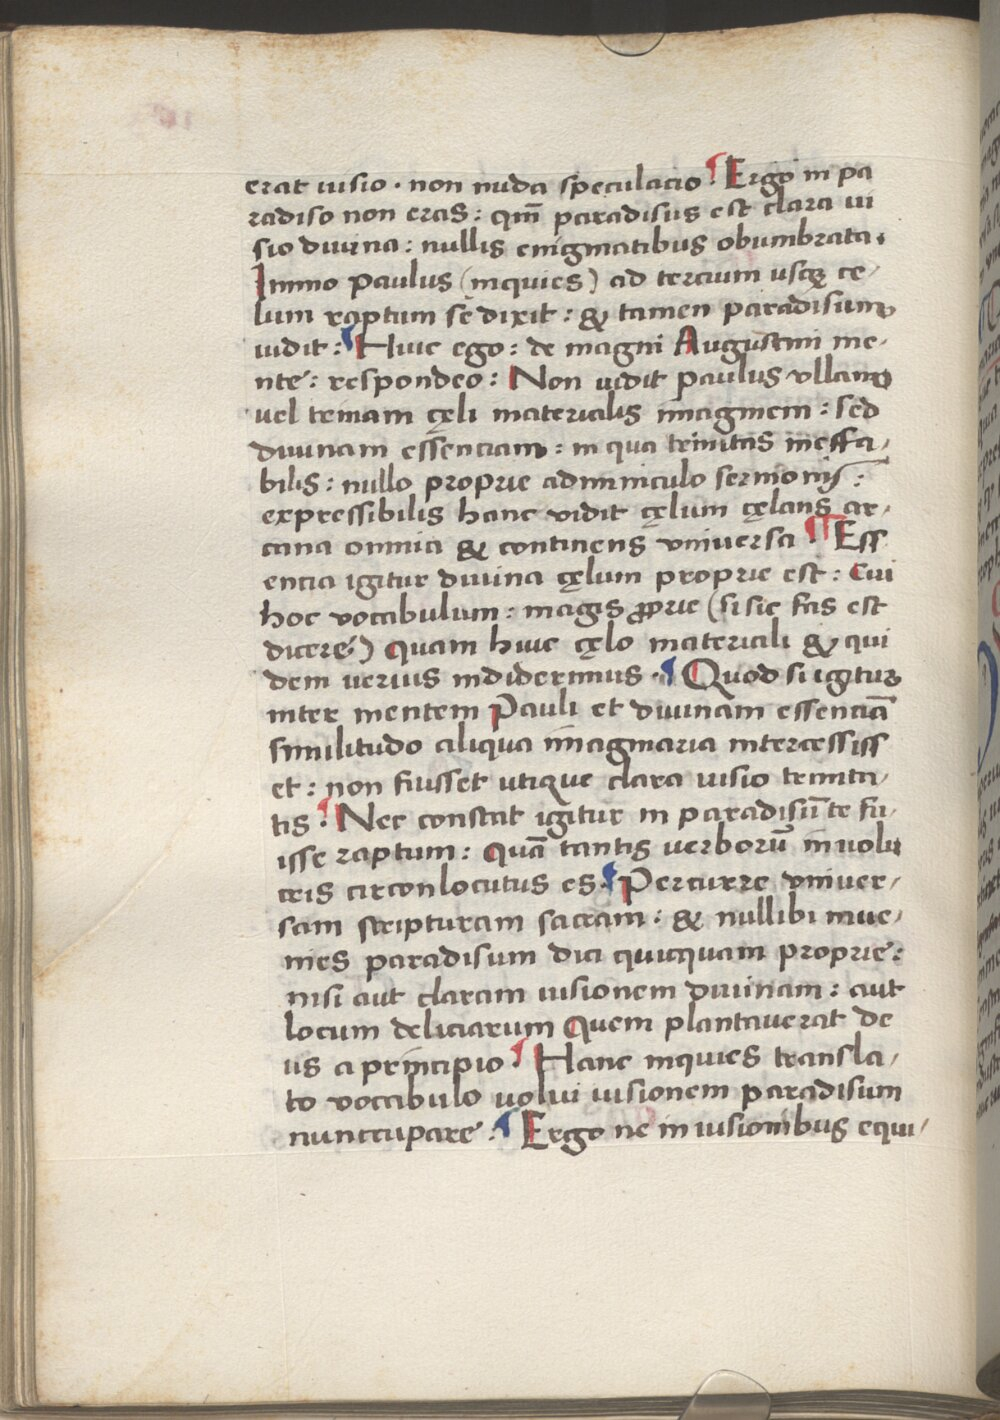 erat uisio · non nuda speculacio · ¶ Ergo in pa
radiso non eras : qm̄ paradisus est clara ui
sio diuina : nullis enigmatibus obumbrata ·
Immo Paulus (inquies) ad tercium usqꝫ ce/
lum raptum sē dixit : & tamen paradisum
uidit : ¶ Huic ego : de magni Augustini me/
nte : respondeo : Non uidit Paulus vllam
uel teinam cęli materialis imaginem : sed
diuinam essenciam : in qua trinitas ineffa/
bilis : nullo proprie adminiculo sermonis :
expressibilis hanc vidit cęlum cęlans ar/
cana omnia & continens vniuersa ¶ Ess
encia igitur diuina cęlum proprie est : Cui
hoc vocabulum : magis ꝓprie (si sic fas est
dicere) quam huic cęlo materiali & qui
dem uerius indiderimus · ¶ Quod si igitur
inter mentem Pauli et diuinam essenciā
similitudo aliqua imaginaria intercessiss
et : non fuisset utique clara uisio trinita/
tis · ¶ Nec constat igitur in paradisū te fu/
isse raptum : quā tantis uerborū inuolu
cris circonlocutus es · ¶ Percurre vniuer/
sam scripturam sacram : & nullibi inue/
nies paradisum dici quicquam proprie :
nisi aut claram uisionem diuinam : aut
locum deliciarum Quem plantauerat de
us a principio ¶ Hanc inquies transla/
to vocabulo uolui uisionem paradisum
nunccupare : ¶ Ergo ne in uisionibus equi/